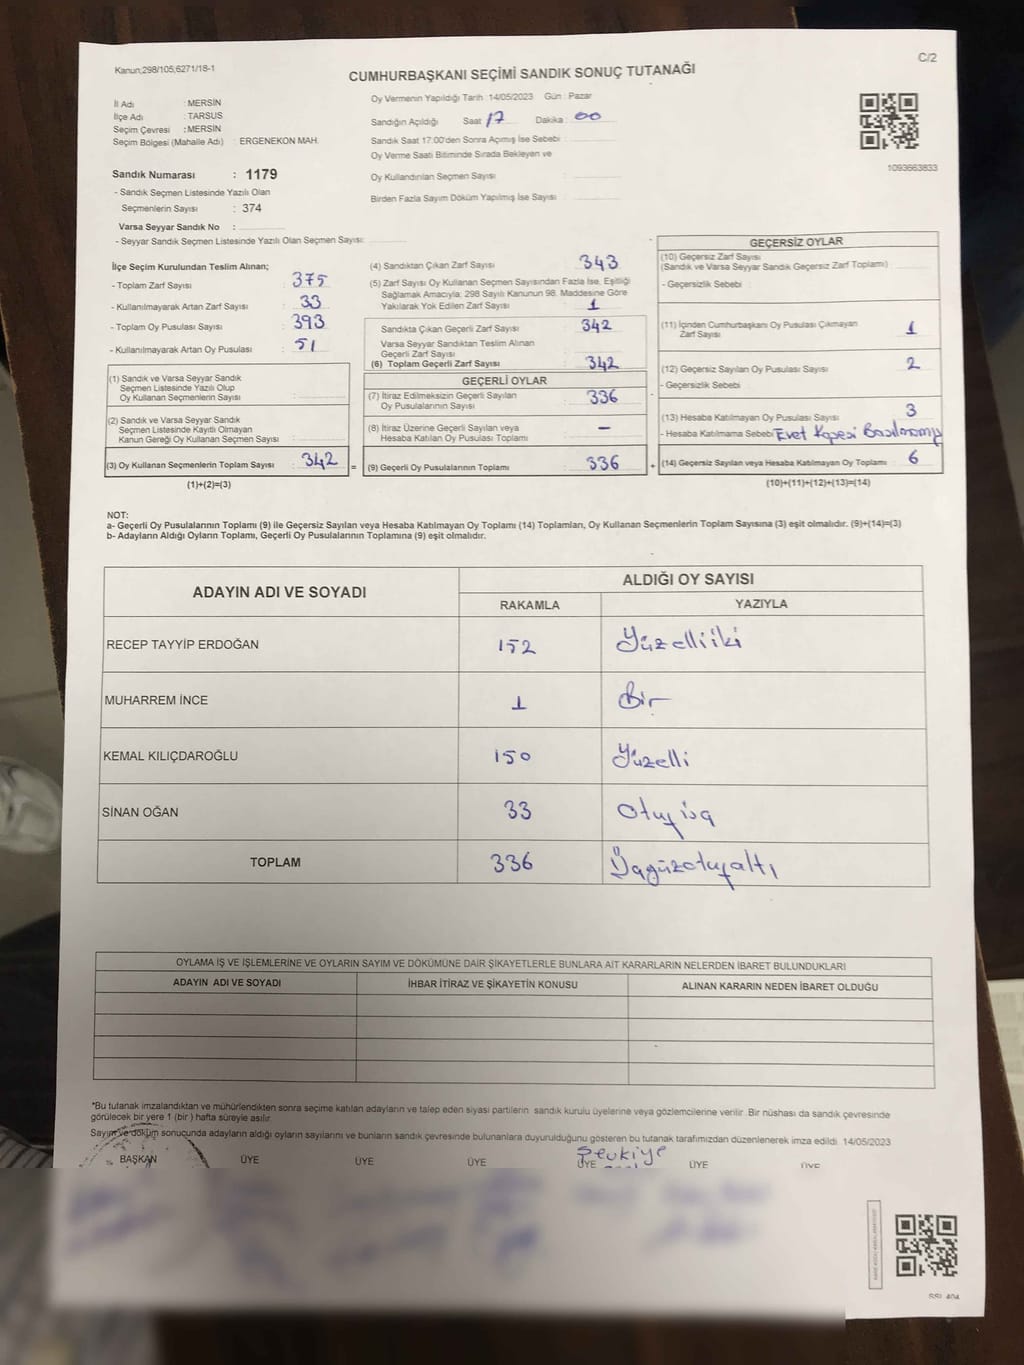 Kanun;298/105;6271/18-1
C/2
CUMHURBAŞKANI SEÇİMİ SANDIK SONUÇ TUTANAĞI
İl Adı : MERSİN
İlçe Adı : TARSUS
Seçim Çevresi : MERSİN
Seçim Bölgesi (Mahalle Adı) : ERGENEKON MAH.
Oy Vermenin Yapıldığı Tarih :14/05/2023 Gün : Pazar
Sandığın Açıldığı Saat 17 Dakika : 00
Sandık Saat 17:00'den Sonra Açımış İse Sebebi :
Oy Verme Saati Bitiminde Sırada Bekleyen ve
Oy Kullandırılan Seçmen Sayısı :
Birden Fazla Sayım Döküm Yapılmış İse Sayısı :
1093663833
Sandık Numarası : 1179
- Sandık Seçmen Listesinde Yazılı Olan
Seçmenlerin Sayısı : 374
Varsa Seyyar Sandık No :
- Seyyar Sandık Seçmen Listesinde Yazılı Olan Seçmen Sayısı:
İlçe Seçim Kurulundan Teslim Alınan;
- Toplam Zarf Sayısı : 375
- Kullanılmayarak Artan Zarf Sayısı : 33
- Toplam Oy Pusulası Sayısı : 393
- Kullanılmayarak Artan Oy Pusulası : 51
(1) Sandık ve Varsa Seyyar Sandık
Seçmen Listesinde Yazılı Olup
Oy Kullanan Seçmenlerin Sayısı :
(2) Sandık ve Varsa Seyyar Sandık
Seçmen Listesinde Kayıtlı Olmayan
Kanun Gereği Oy Kullanan Seçmen Sayısı :
(3) Oy Kullanan Seçmenlerin Toplam Sayısı : 342 =
(1)+(2)=(3)
(4) Sandıktan Çıkan Zarf Sayısı : 343
(5) Zarf Sayısı Oy Kullanan Seçmen Sayısından Fazla İse, Eşitliği
Sağlamak Amacıyla; 298 Sayılı Kanunun 98. Maddesine Göre
Yakılarak Yok Edilen Zarf Sayısı : 1
Sandıkta Çıkan Geçerli Zarf Sayısı : 342
Varsa Seyyar Sandıktan Teslim Alınan
Geçerli Zarf Sayısı :
(6) Toplam Geçerli Zarf Sayısı : 342
GEÇERLİ OYLAR
(7) İtiraz Edilmeksizin Geçerli Sayılan
Oy Pusulalarının Sayısı : 336
(8) İtiraz Üzerine Geçerli Sayılan veya
Hesaba Katılan Oy Pusulası Toplamı : -
(9) Geçerli Oy Pusulalarının Toplamı : 336 +
GEÇERSİZ OYLAR
(10) Geçersiz Zarf Sayısı
(Sandık ve Varsa Seyyar Sandık Geçersiz Zarf Toplamı)
- Geçersizlik Sebebi :
(11) İçinden Cumhurbaşkanı Oy Pusulası Çıkmayan
Zarf Sayısı : 1
(12) Geçersiz Sayılan Oy Pusulası Sayısı : 2
- Geçersizlik Sebebi :
(13) Hesaba Katılmayan Oy Pusulası Sayısı : 3
- Hesaba Katılmama Sebebi : Evet
(14) Geçersiz Sayılan veya Hesaba Katılmayan Oy Toplamı : 6
(10)+(11)+(12)+(13)=(14)
NOT:
a- Geçerli Oy Pusulalarının Toplamı (9) ile Geçersiz Sayılan veya Hesaba Katılmayan Oy Toplamı (14) Toplamları, Oy Kullanan Seçmenlerin Toplam Sayısına (3) eşit olmalıdır. (9)+(14)=(3)
b- Adayların Aldığı Oyların Toplamı, Geçerli Oy Pusulalarının Toplamına (9) eşit olmalıdır.
ADAYIN ADI VE SOYADI
ALDIĞI OY SAYISI
RAKAMLA YAZIYLA
RECEP TAYYİP ERDOĞAN 152 Yüzelliiki
MUHARREM İNCE 1 Bir
KEMAL KILIÇDAROĞLU 150 Yüzelli
SİNAN OĞAN 33
TOPLAM 336
OYLAMA İŞ VE İŞLEMLERİNE VE OYLARIN SAYIM VE DÖKÜMÜNE DAİR ŞİKAYETLERLE BUNLARA AİT KARARLARIN NELERDEN İBARET BULUNDUKLARI
ADAYIN ADI VE SOYADI İHBAR İTİRAZ VE ŞİKAYETİN KONUSU ALINAN KARARIN NEDEN İBARET OLDUĞU
*Bu tutanak imzalandıktan ve mühürlendikten sonra seçime katılan adayların ve talep eden siyasi partilerin sandık kurulu üyelerine veya gözlemcilerine verilir. Bir nüshası da sandık çevresinde
görülecek bir yere 1 (bir ) hafta süreyle asılır.
Sayım ve döküm sonucunda adayların aldığı oyların sayılarını ve bunların sandık çevresinde bulunanlara duyurulduğunu gösteren bu tutanak tarafımızdan düzenlenerek imza edildi. 14/05/2023
Şevkiye
BAŞKAN ÜYE ÜYE ÜYE ÜYE ÜYE ÜYE